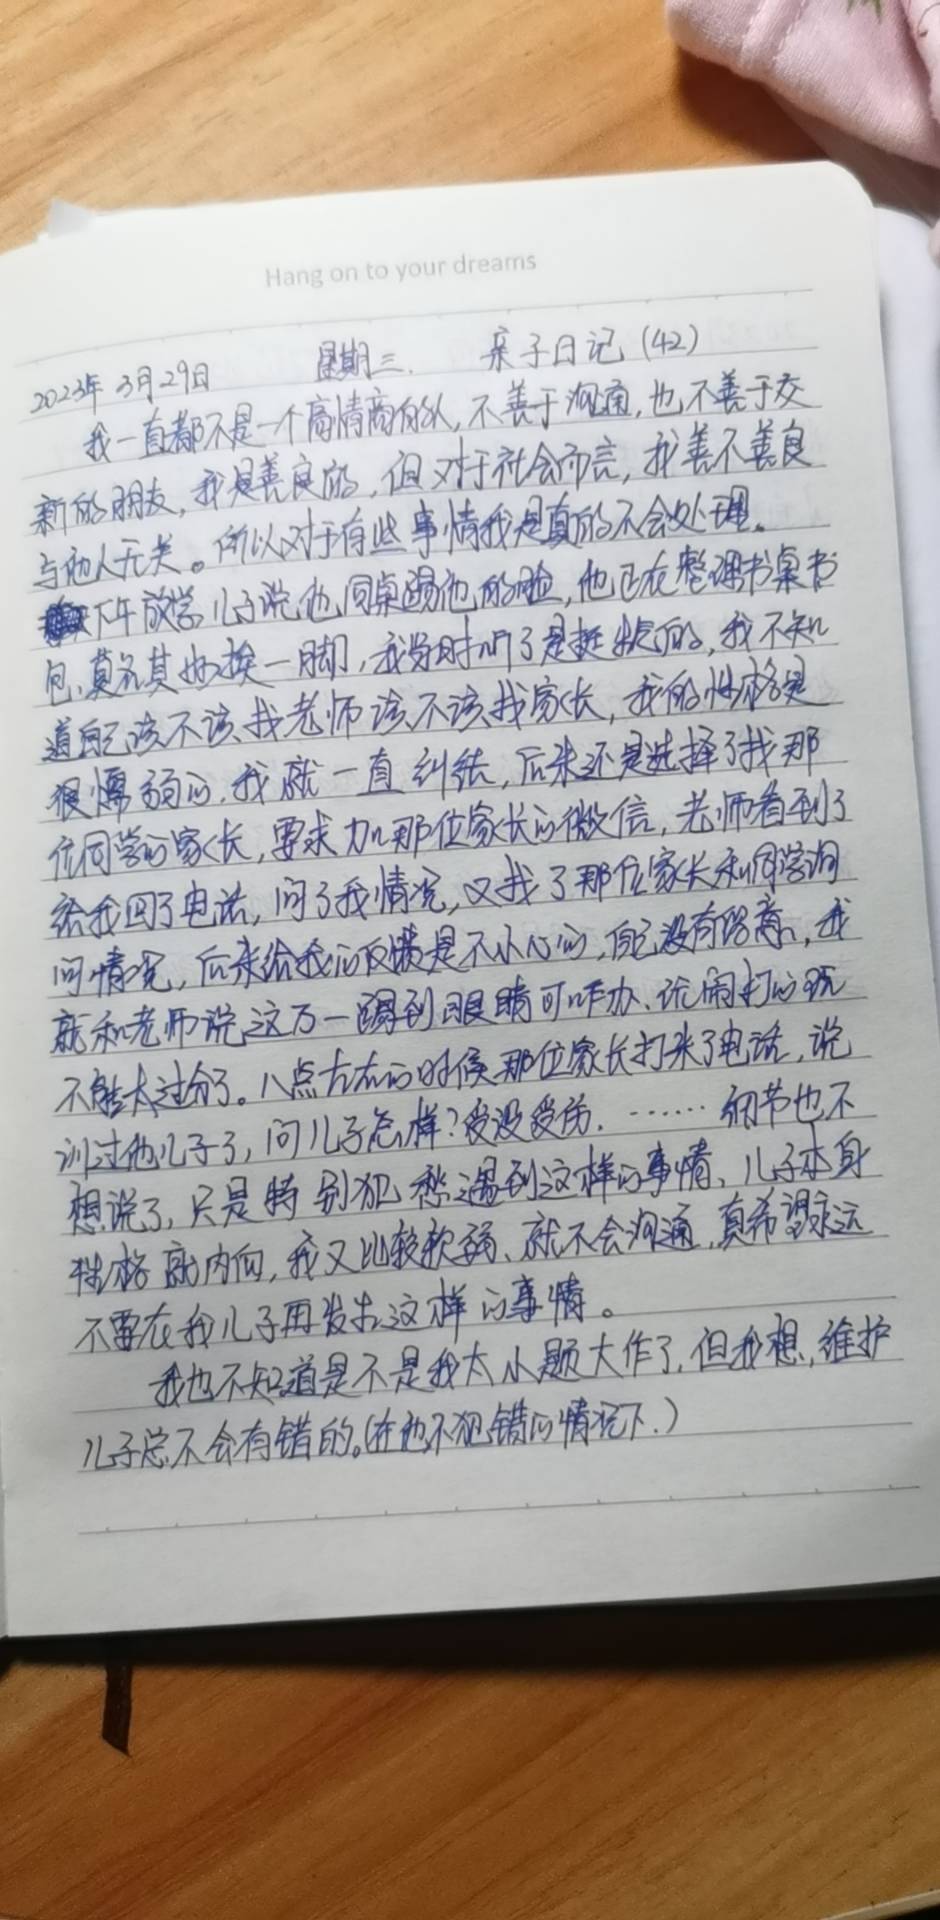 Hang on to your dreams
2023年3月29日 星期三. 亲子日记(42)
我一直都不是一个高情商的人,不善于沟通,也不善于交
新的朋友,我是善良的,但对于社会而言,我善不善良
与他人无关。所以对于有些事情我是真的不会处理。
下午放学儿子说他同桌踢他的脸,他正在整理书桌书
包,莫名其妙挨一脚,我当时听了是挺火的,我不知
道自己该不该找老师该不该找家长,我的性格是
很懦弱的,我就一直纠结,后来还是选择了找那
位同学的家长,要求加那位家长的微信,老师看到了
给我回了电话,问了我情况,又找了那位家长和同学询
问情况,后来给我的反馈是不小心的,自己没有留意,我
就和老师说这万一踢到眼睛可咋办、玩闹打的玩
不能太过分了。八点左右的时候那位家长打来了电话,说
训过他儿子了,问儿子怎样?受没受伤. …… 细节也不
想说了,只是特别犯愁遇到这样的事情、儿子本身
性格就内向,我又比较软弱、就不会沟通,真希望永远
不要在我儿子再发生这样的事情。
我也不知道是不是我太小题大作了,但我想,维护
儿子总不会有错的。(在他不犯错的情况下.)